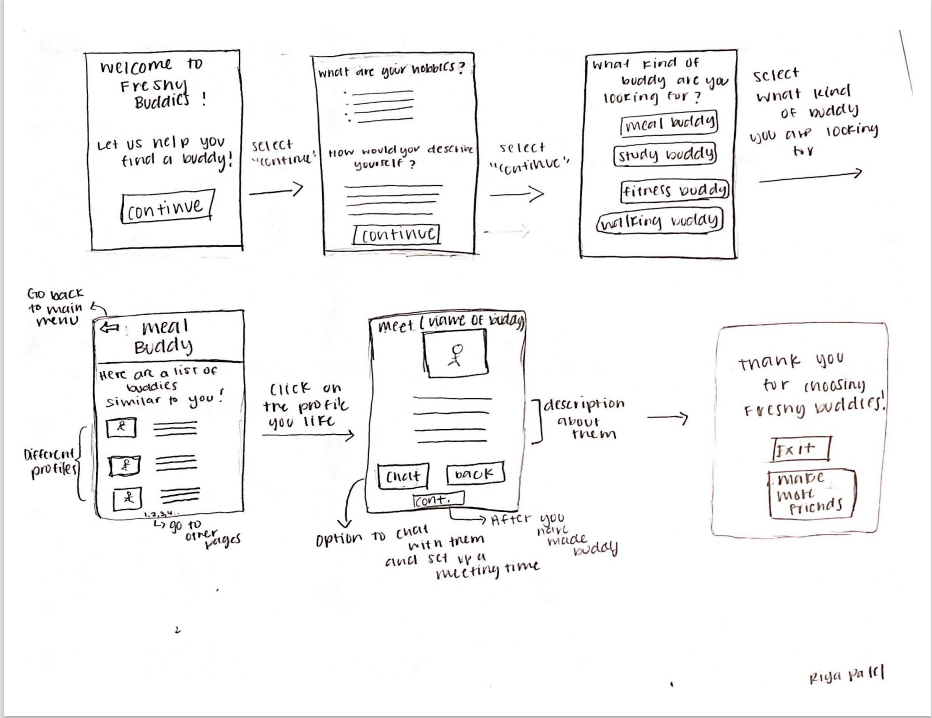 Welcome to
Freshy
Buddies !
Let us help you
find a buddy!
continue
select
"continue"
What are your hobbies?
How would you describe
yourself ?
continue
select
"continue"
What kind of
buddy are you
looking for ?
meal buddy
study buddy
fitness buddy
walking buddy
select
what kind
of buddy
you are looking
for
Go back
to main
menu
meal
Buddy
Here are a list of
buddies
similar to you!
Different
profiles
1,2,3,4...
go to
other
pages
Click on
the profile
you like
meet (name of buddy)
description
about
them
chat
back
cont.
Option to chat
with them
and set up a
meeting time
After you
have
made
buddy
Thank you
for choosing
Freshy buddies!
Exit
make
more
friends
2
Riya Patel